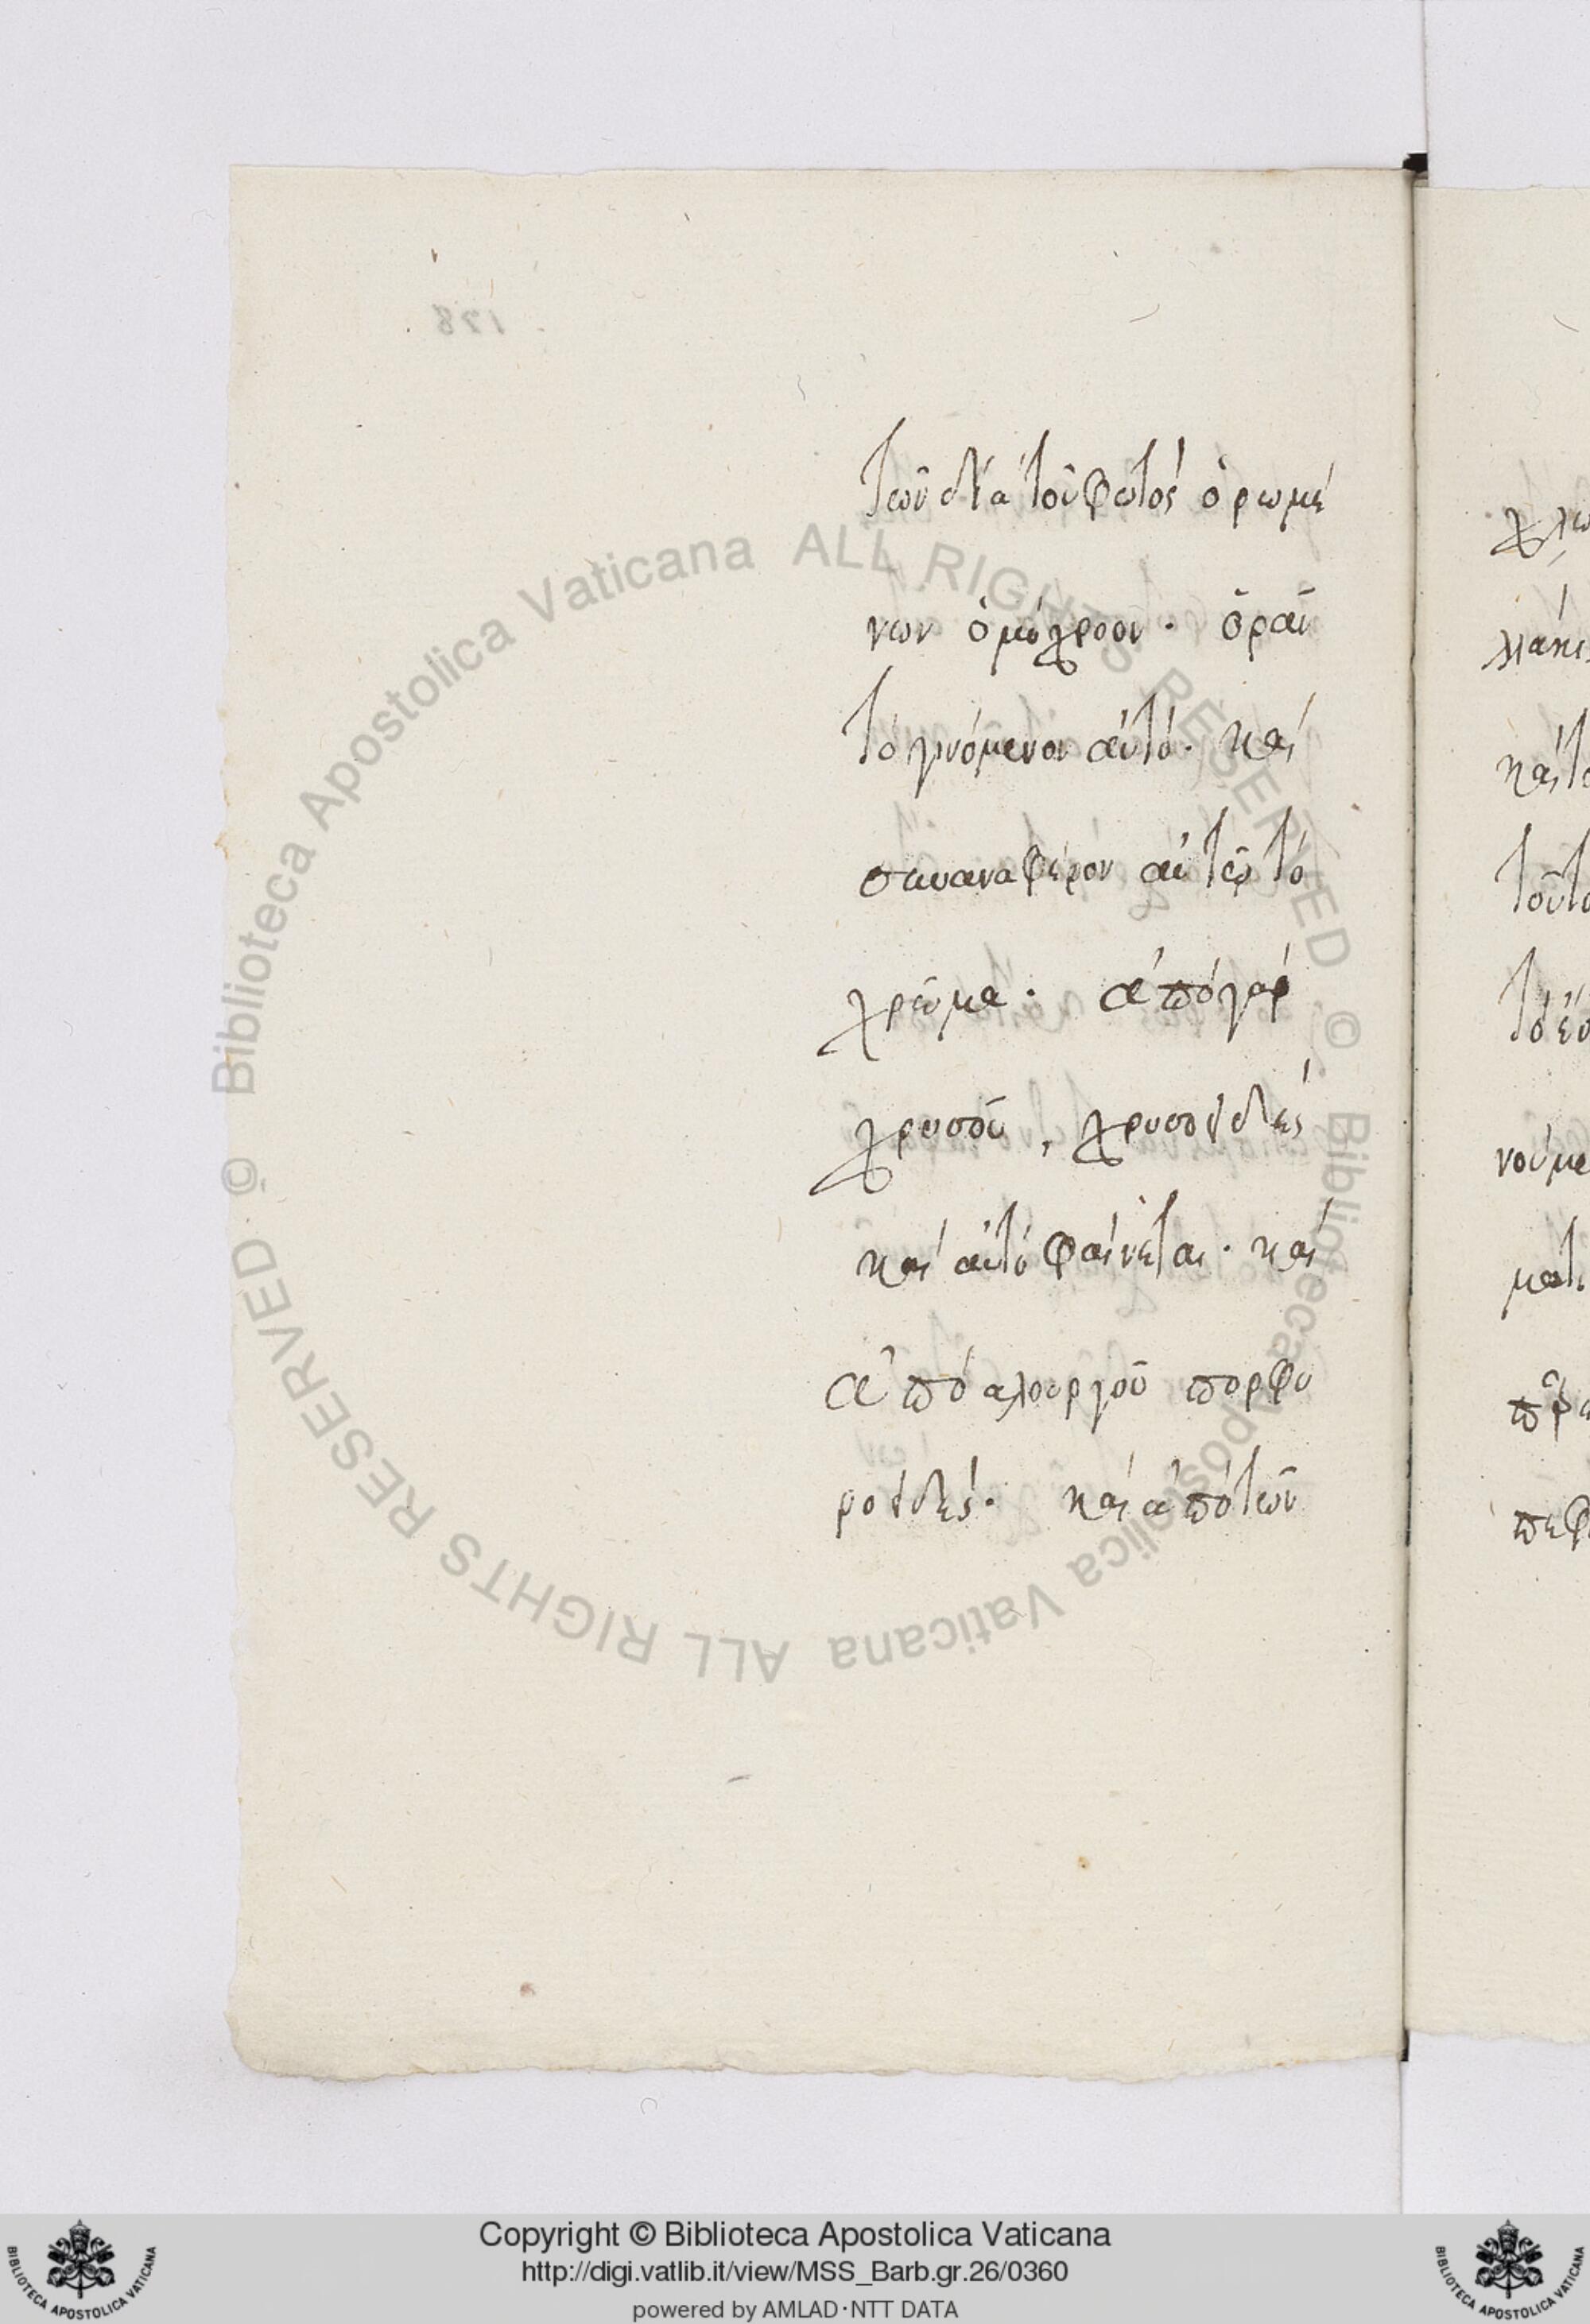 τῶν διὰ τοῦ φωτὸς ὁρωμέ
νων ὁμόχροον· ὁρᾶν
τὸ γινόμενον αὐτό· καὶ
συναναφέρον αὐτῷ τὸ
χρῶμα· ἀπὸ γὰρ
χρυσοῦ, χρυσοειδὲς
καὶ αὐτὸ φαίνεται· καὶ
ἀπὸ αλουργοῦ πορφυ
ροειδὲς· καὶ ἀπὸ τῶν
178
© Biblioteca Apostolica Vaticana ALL RIGHTS RESERVED
© Biblioteca Apostolica Vaticana ALL RIGHTS RESERVED
Copyright © Biblioteca Apostolica Vaticana
http://digi.vatlib.it/view/MSS_Barb.gr.26/0360
powered by AMLAD·NTT DATA
BIBLIOTECA APOSTOLICA VATICANA
BIBLIOTECA APOSTOLICA VATICANA